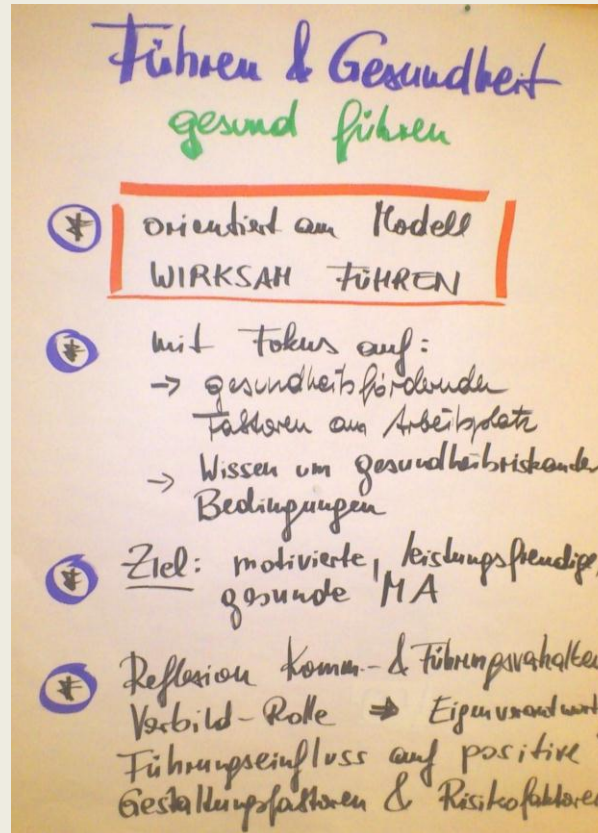 Führen & Gesundheit
gesund führen
* orientiert am Modell
WIRKSAM FÜHREN
* mit Fokus auf:
→ gesundheitsfördernden
Faktoren am Arbeitsplatz
→ Wissen um gesundheitsriskanden
Bedingungen
* Ziel: motivierte, leistungsfreudige,
gesunde MA
* Reflexion Komm- & Führungsverhalten
Vorbild-Rolle ⇒ Eigenverantwort
Führungseinfluss auf positive
Gestaltungsfaktoren & Risikofaktoren